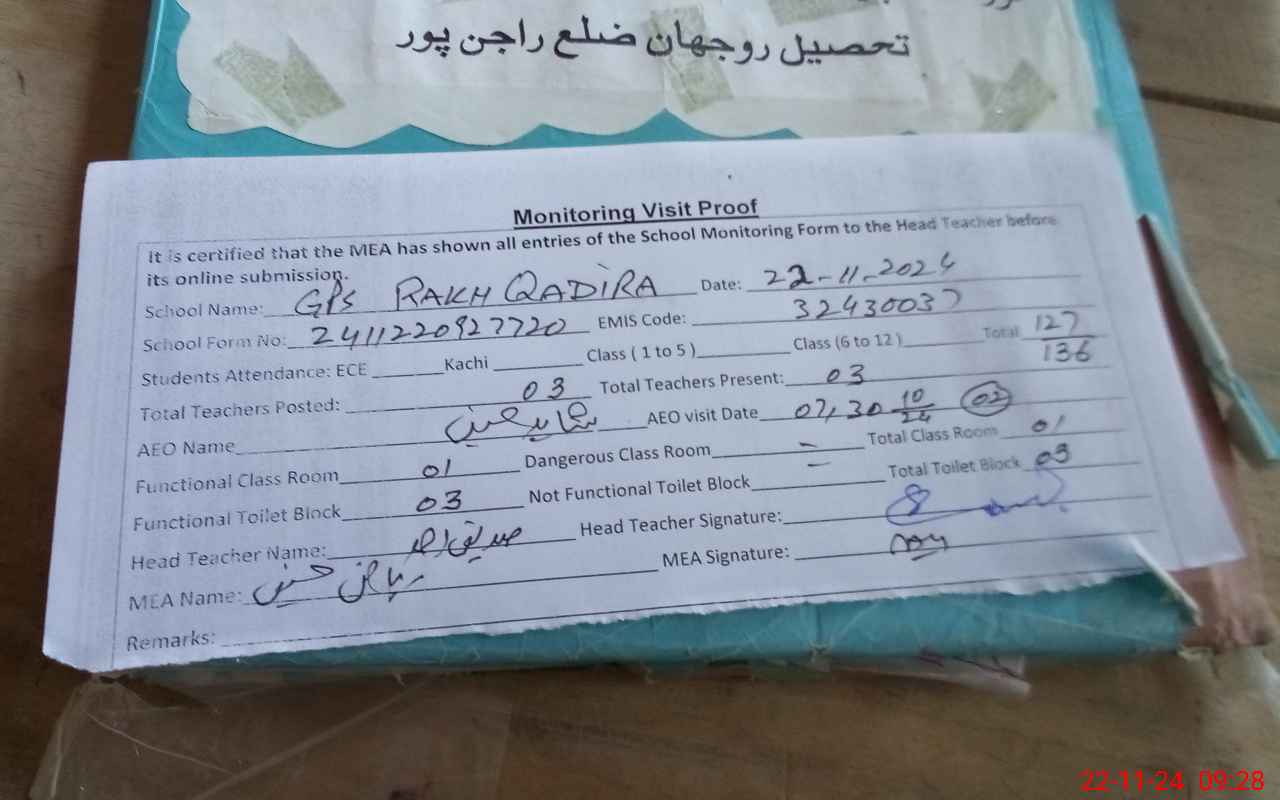 تحصیل روجھان ضلع راجن پور
Monitoring Visit Proof
It is certified that the MEA has shown all entries of the School Monitoring Form to the Head Teacher before
its online submission.
School Name: GPS RAKH QADIRA Date: 22-11-2024
School Form No: 2411220927720 EMIS Code: 32430037
Students Attendance: ECE Kachi Class ( 1 to 5 ) Class (6 to 12 ) Total 127/136
Total Teachers Posted: 03 Total Teachers Present: 03
AEO Name AEO visit Date 07, 30 10/24 02
Functional Class Room 01 Dangerous Class Room - Total Class Room 01
Functional Toilet Block 03 Not Functional Toilet Block - Total Toilet Block 03
Head Teacher Name: Head Teacher Signature:
MEA Name: MEA Signature:
Remarks:
22-11-24 09:28